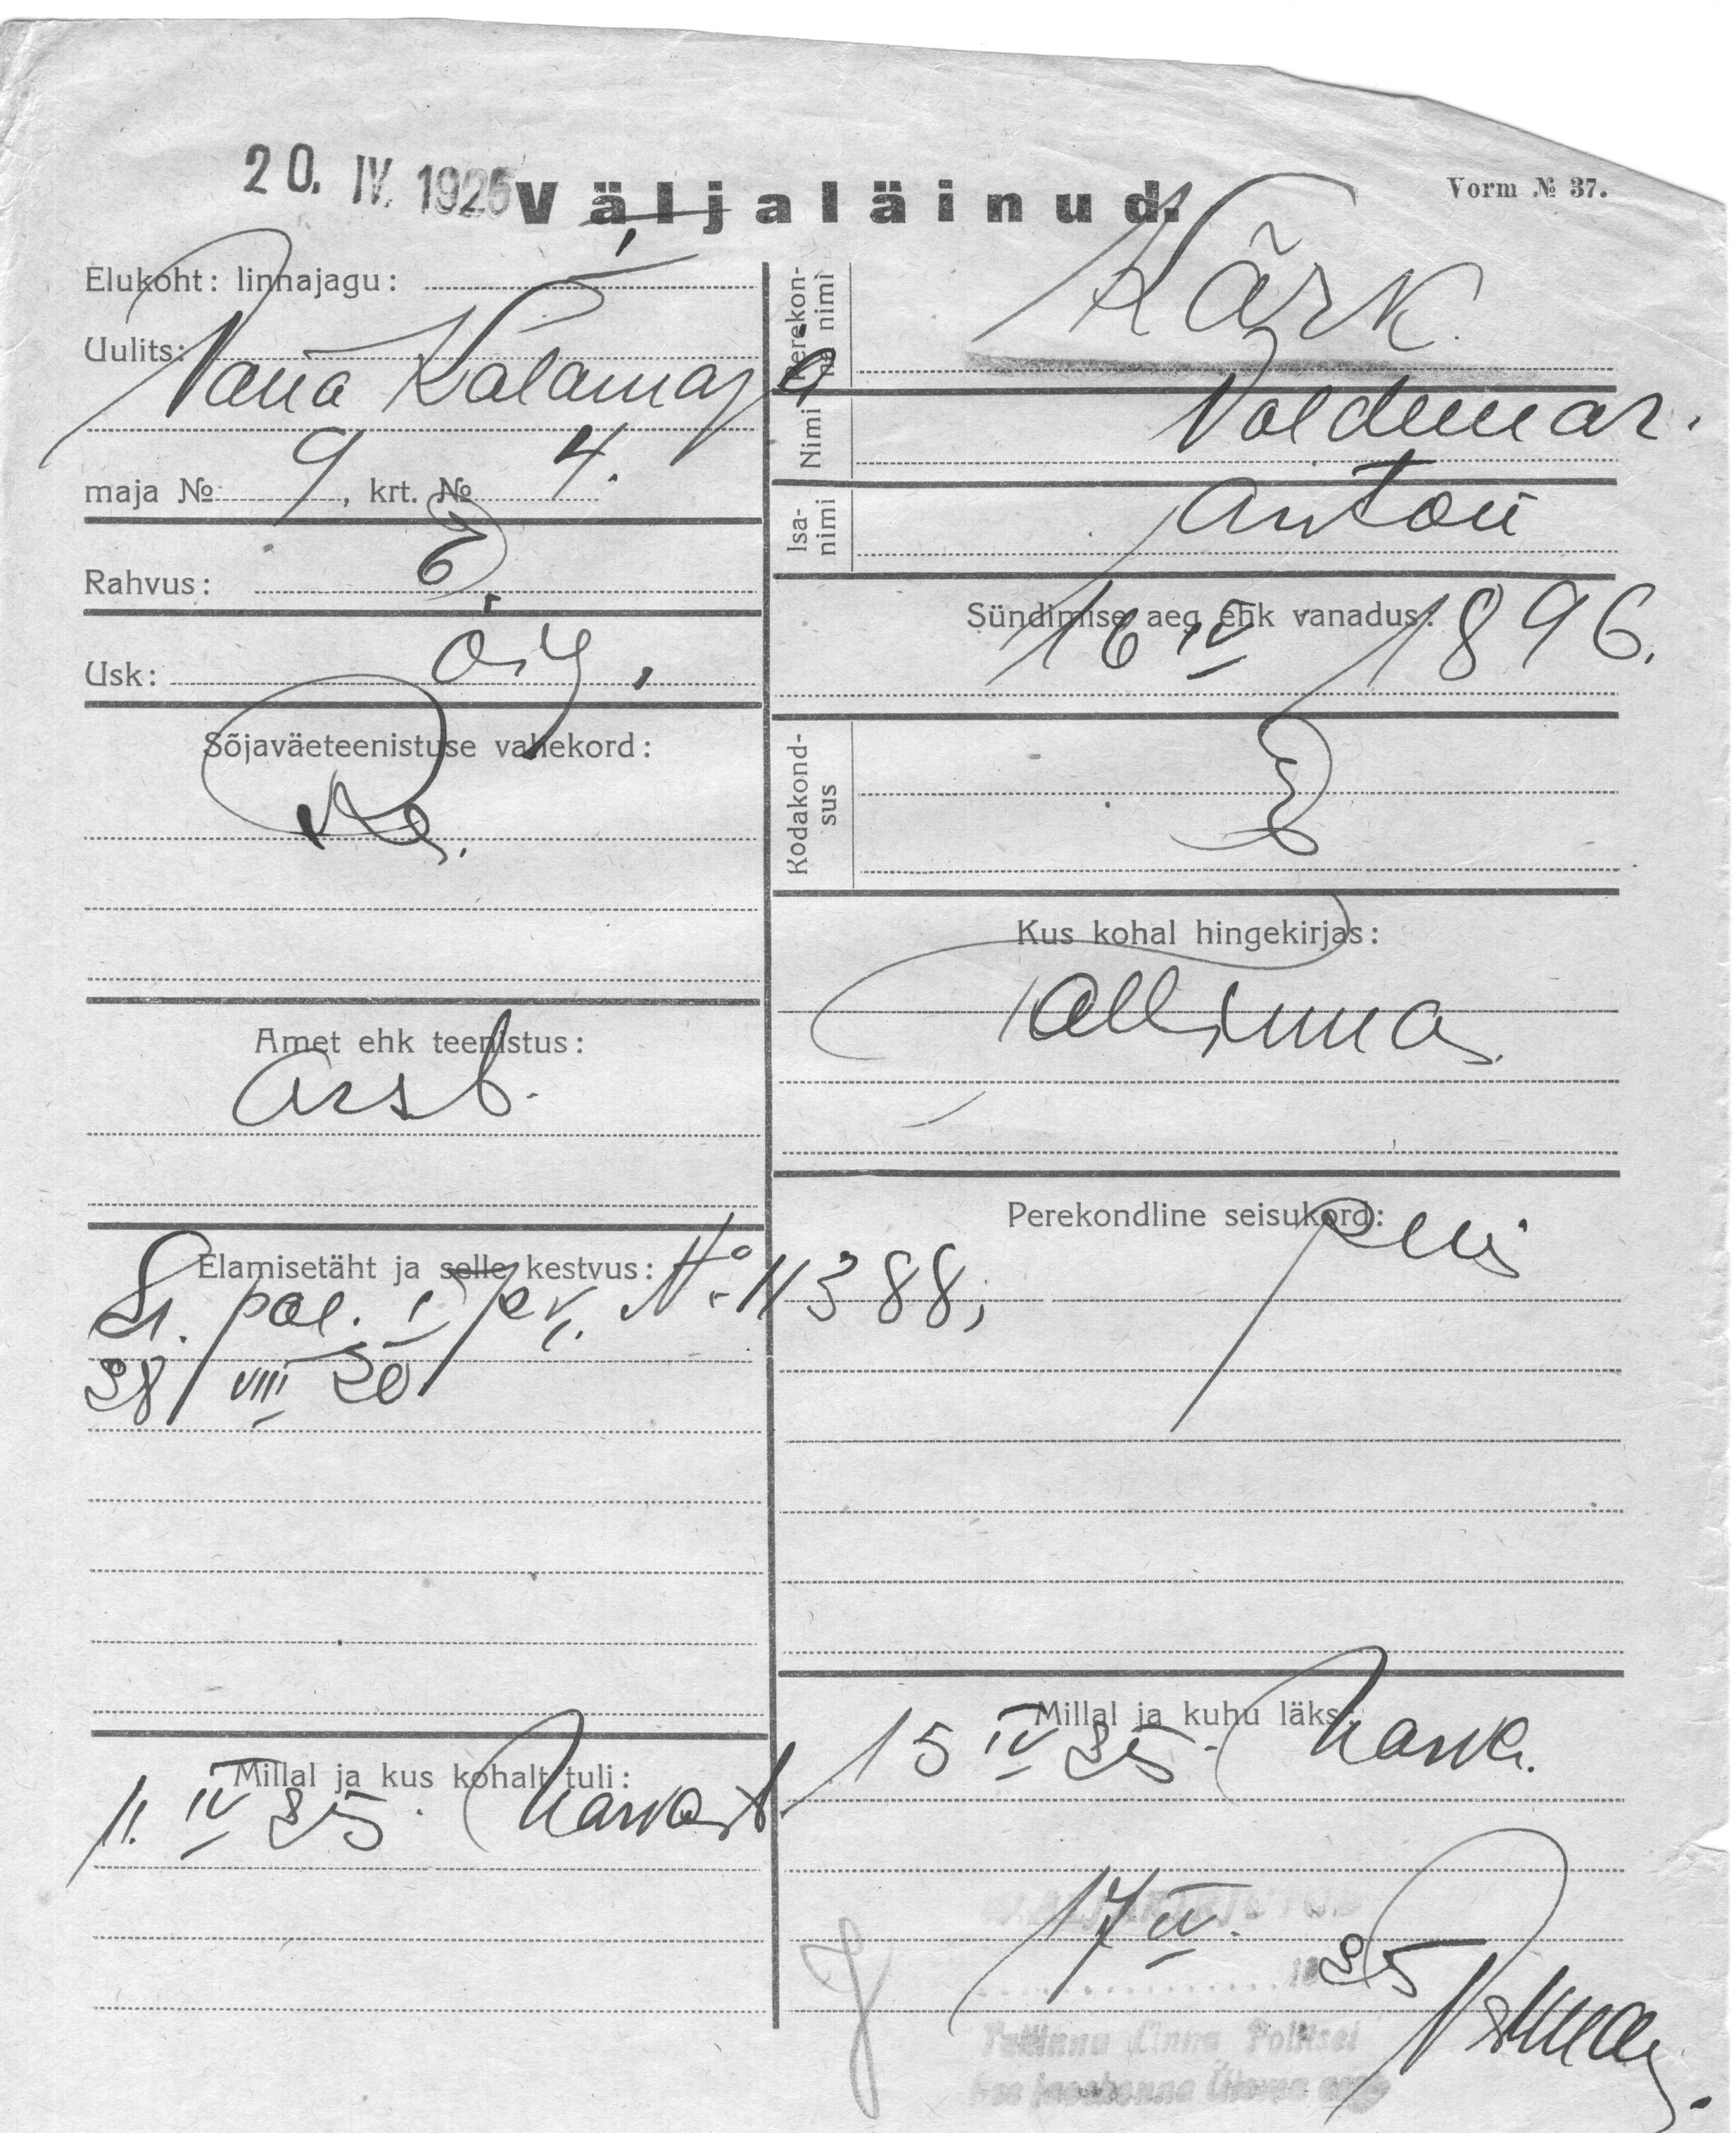 20. IV. 1925
Väljaläinud.
Vorm № 37.
Elukoht: linnajagu:
Uulits: Vana Kalamaja
maja № 9, krt. № 4.
Rahvus: E
Usk: õig.
Sõjaväeteenistuse vahekord:
Amet ehk teenistus:
arst.
Elamisetäht ja selle kestvus: № 11388;
pol. I
28/VIII 20
Millal ja kus kohalt tuli:
11. IV 25. Narvast
Perekonna nimi
Kärk.
Nimi
Voldemar.
Isanimi
Anton
Sündimise aeg ehk vanadus:
16 IV 1896.
Kodakondsus
E
Kus kohal hingekirjas:
Tallinna
Perekondline seisukord:
Millal ja kuhu läks:
15 IV 25. Narva.
17 IV. 25
Tallinna Linna Politsei